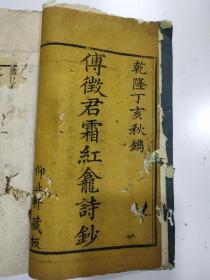 乾隆丁亥秋鐫
傅徵君霜紅龕詩鈔
仰止軒藏板